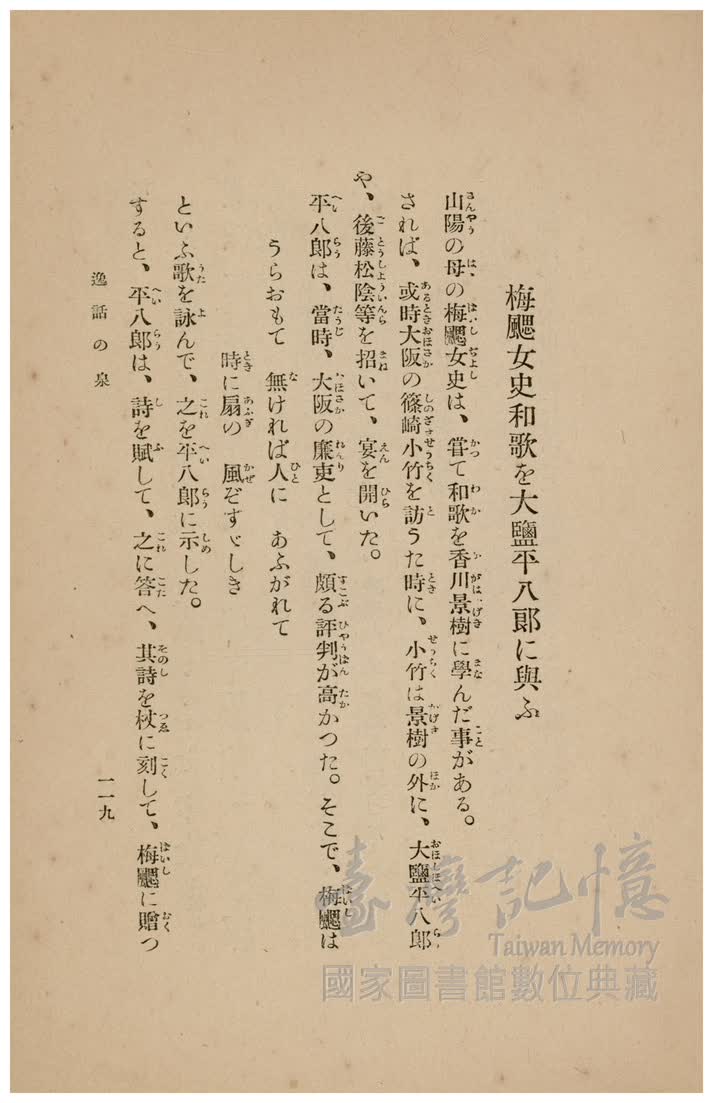 梅颸女史和歌を大鹽平八郎に與ふ
山陽の母の梅颸女史は、甞て和歌を香川景樹に學んだ事がある。
されば、或時大阪の篠崎小竹を訪うた時に、小竹は景樹の外に、大鹽平八郎
や、後藤松陰等を招いて、宴を開いた。
平八郎は、當時、大阪の廉吏として、頗る評判が高かつた。そこで、梅颸は
うらおもて 無ければ人に あふがれて
時に扇の 風ぞすゞしき
といふ歌を詠んで、之を平八郎に示した。
すると、平八郎は、詩を賦して、之に答へ、其詩を杖に刻して、梅颸に贈つ
逸話の泉
一一九
臺灣記憶
Taiwan Memory
國家圖書館數位典藏